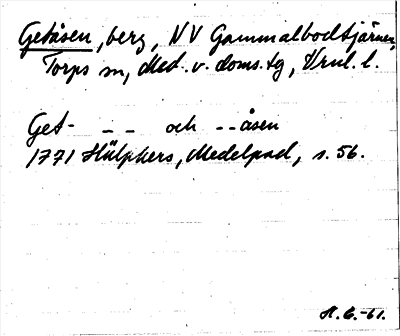 Getåsen, berg, NV Gammalbodtjärnen,
Torps sn, Med. v. doms. tg, Vrnl. l.
Get- – – och - - åsen
1771 Hülphers, Medelpad, s. 56.
H. G. -61.